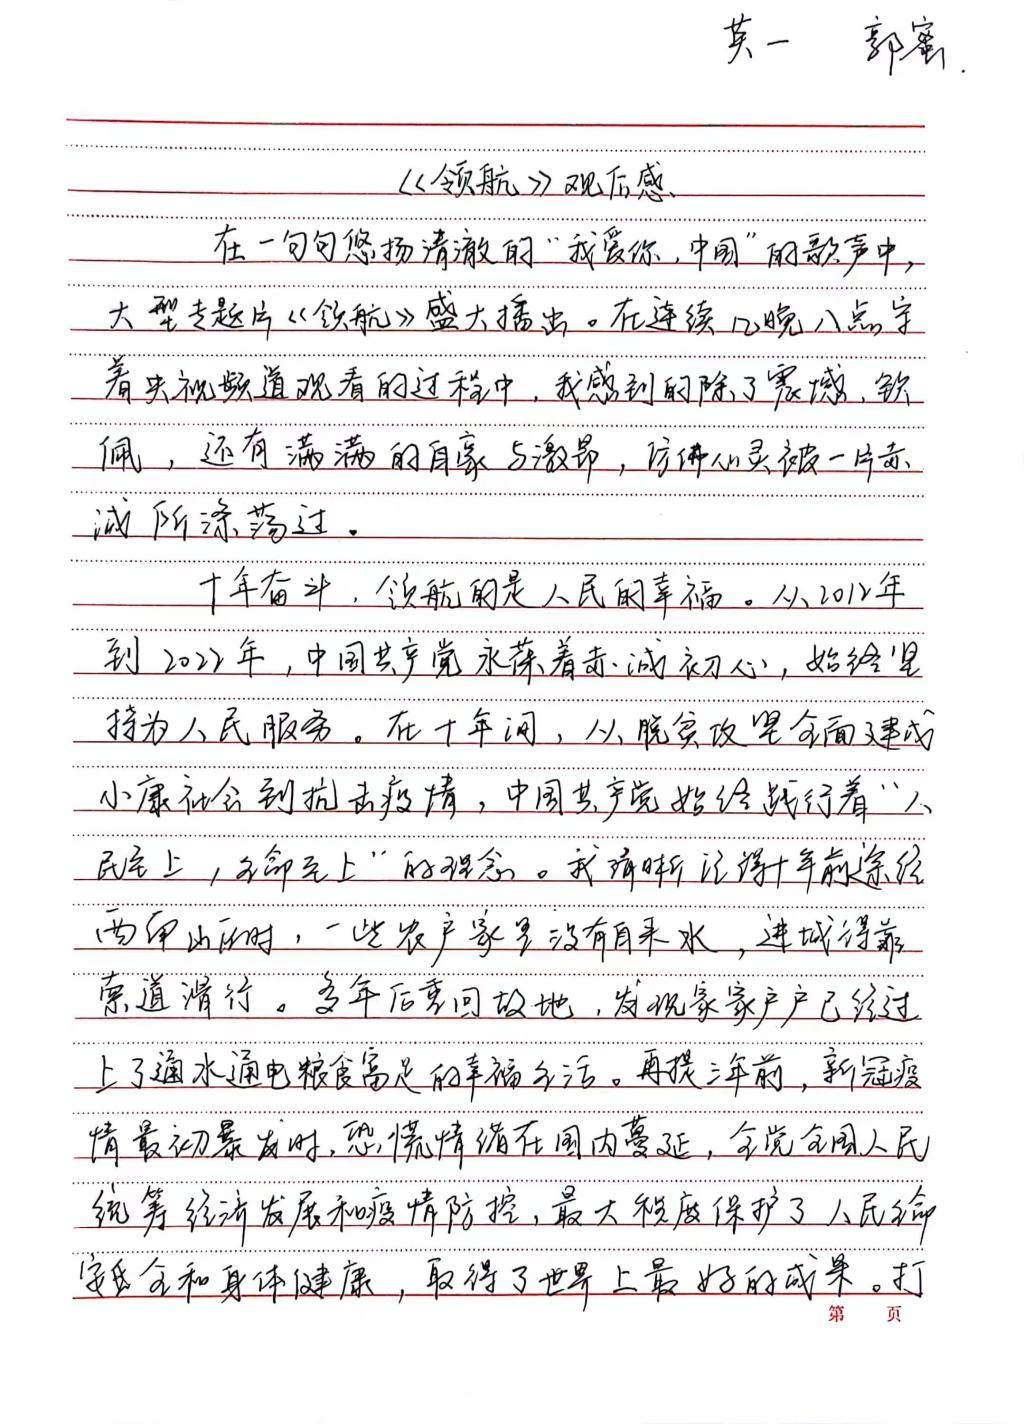 英一 郭蜜.
《领航》观后感
在一句句悠扬清澈的“我爱你，中国”的歌声中，
大型专题片《领航》盛大播出。在连续几晚八点守
着央视频道观看的过程中，我感到的除了震憾、钦
佩，还有满满的自豪与激昂，仿佛心灵被一片赤
诚所涤荡过。
十年奋斗，领航的是人民的幸福。从2012年
到2022年，中国共产党永葆着赤诚初心，始终坚
持为人民服务。在十年间，从脱贫攻坚全面建成
小康社会到抗击疫情，中国共产党始终践行着“人
民至上，生命至上”的理念。我清晰记得十年前途经
西部山区时，一些农户家里没有自来水，进城得靠
索道滑行。多年后重回故地，发现家家户户已经过
上了通水通电粮食富足的幸福生活。再提三年前，新冠疫
情最初暴发时，恐慌情绪在国内蔓延，全党全国人民
统筹经济发展和疫情防控，最大程度保护了人民生命
安全和身体健康，取得了世界上最好的成果。打
第 页